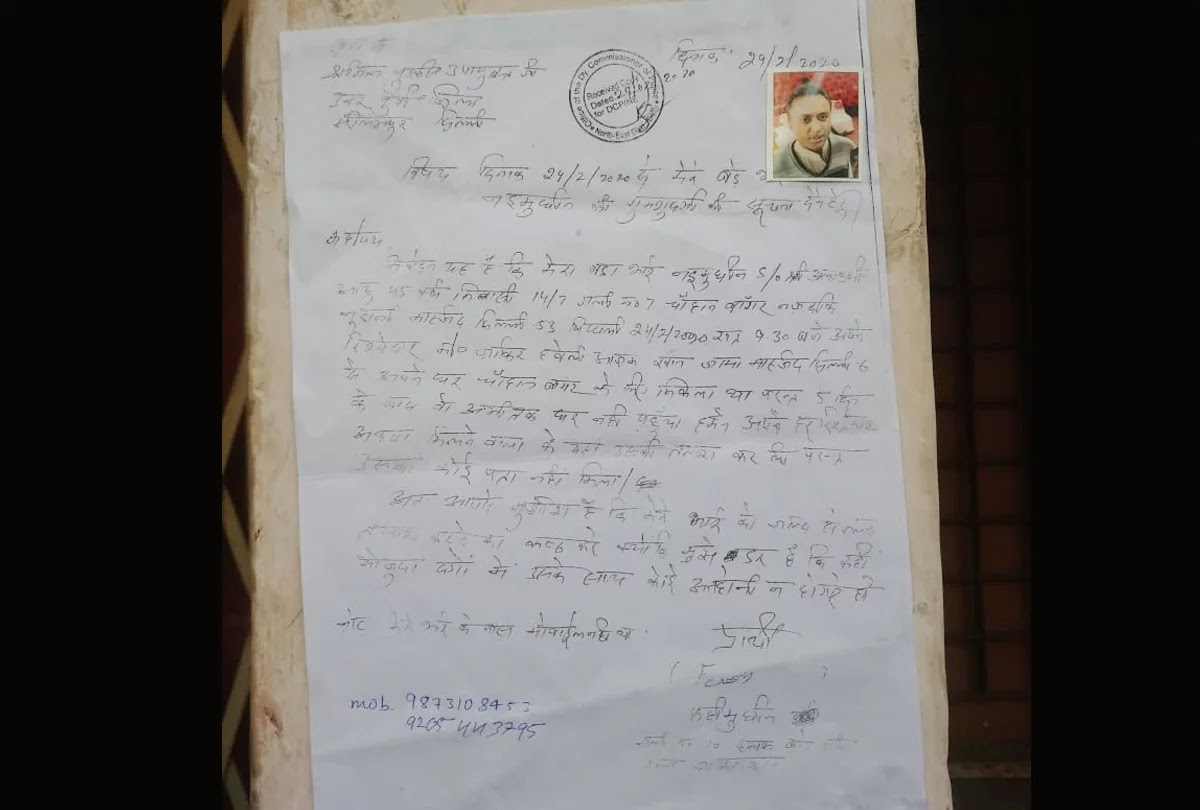 दिनांक: 29/2/2020
Office of the Dy. Commissioner of Police
North-East Distt. Delhi
Received
Dated
for DCP/NE
श्रीमान पुलिस उपायुक्त जी
उत्तर पूर्वी जिला
सीलमपुर दिल्ली
विषय दिनांक 24/2/2020 से मेरे बड़े
नइमुद्दीन की गुमशुदगी की सूचना
महोदय,
निवेदन यह है कि मेरा बड़ा भाई नइमुद्दीन S/o श्री
आयु 45 वर्ष निवासी 14/7 गली न० 7 चौहान बाँगर नजदीक
नूरानी मस्जिद दिल्ली 53 24/2/2020 रात 9:30 बजे अपने
रिश्तेदार मो० जाकिर हवेली आज़म खान जामा मस्जिद दिल्ली 6
से अपने घर चौहान बाँगर के लिए निकला था परन्तु 5 दिन
के बाद भी अभी तक घर नहीं पहुँचा हमने अपने हर रिश्तेदार
अथवा मिलने वालो के यहाँ उसकी तलाश कर ली परन्तु
उसका कोई पता नहीं मिला/
अतः आपसे गुजारिश है कि मेरे भाई को जल्द से जल्द
तलाश करने का कष्ट करे क्योंकि मुझे डर है कि कहीं
मौजूदा दंगों में उसके साथ कोई अनहोनी न हो गई हो
नोट मेरे भाई के पास मोबाईल नही था.
प्रार्थी
mob. 9873108453
9205443795